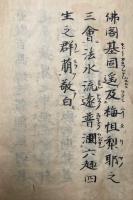 佛閣基固遥及梅怛梨耶之
三會法水流遠普潤六趣四
生之群萠敬白